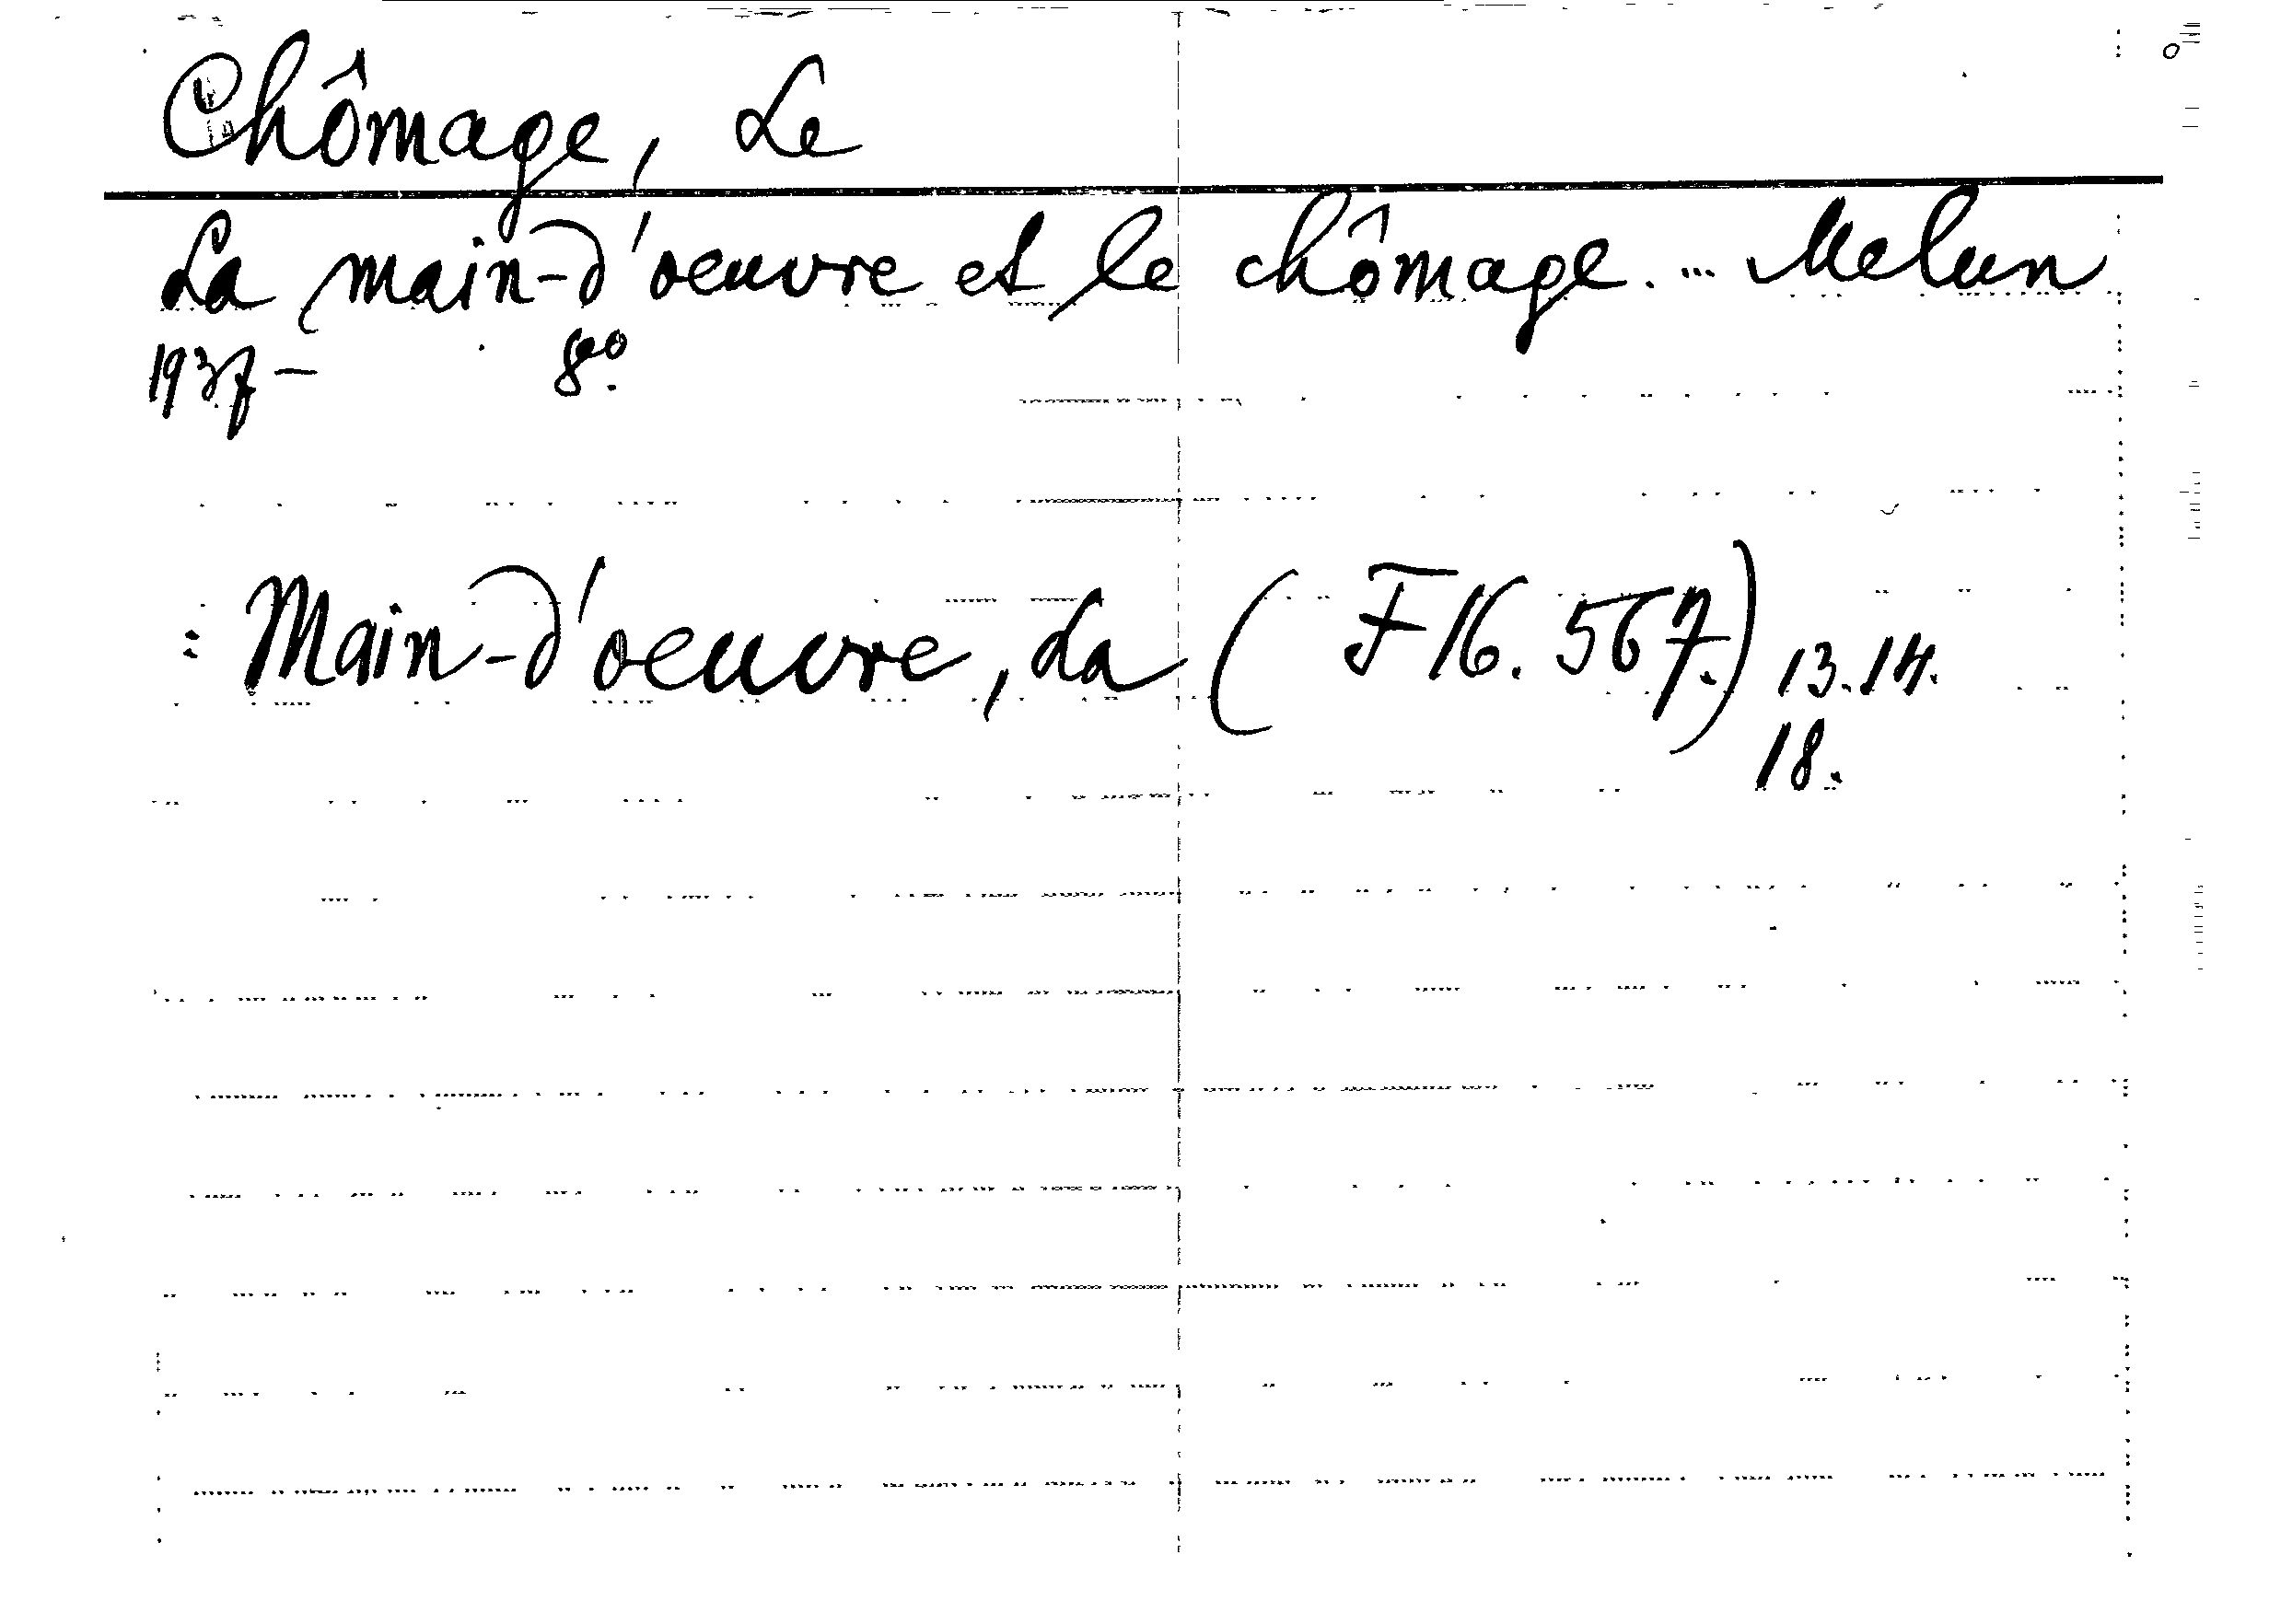 Chômage, Le
La main-d'oeuvre et le chômage. ... Melun
1937 - 8º.
= Main-d'oeuvre, La ( F 16. 567.) 13.14.
18.